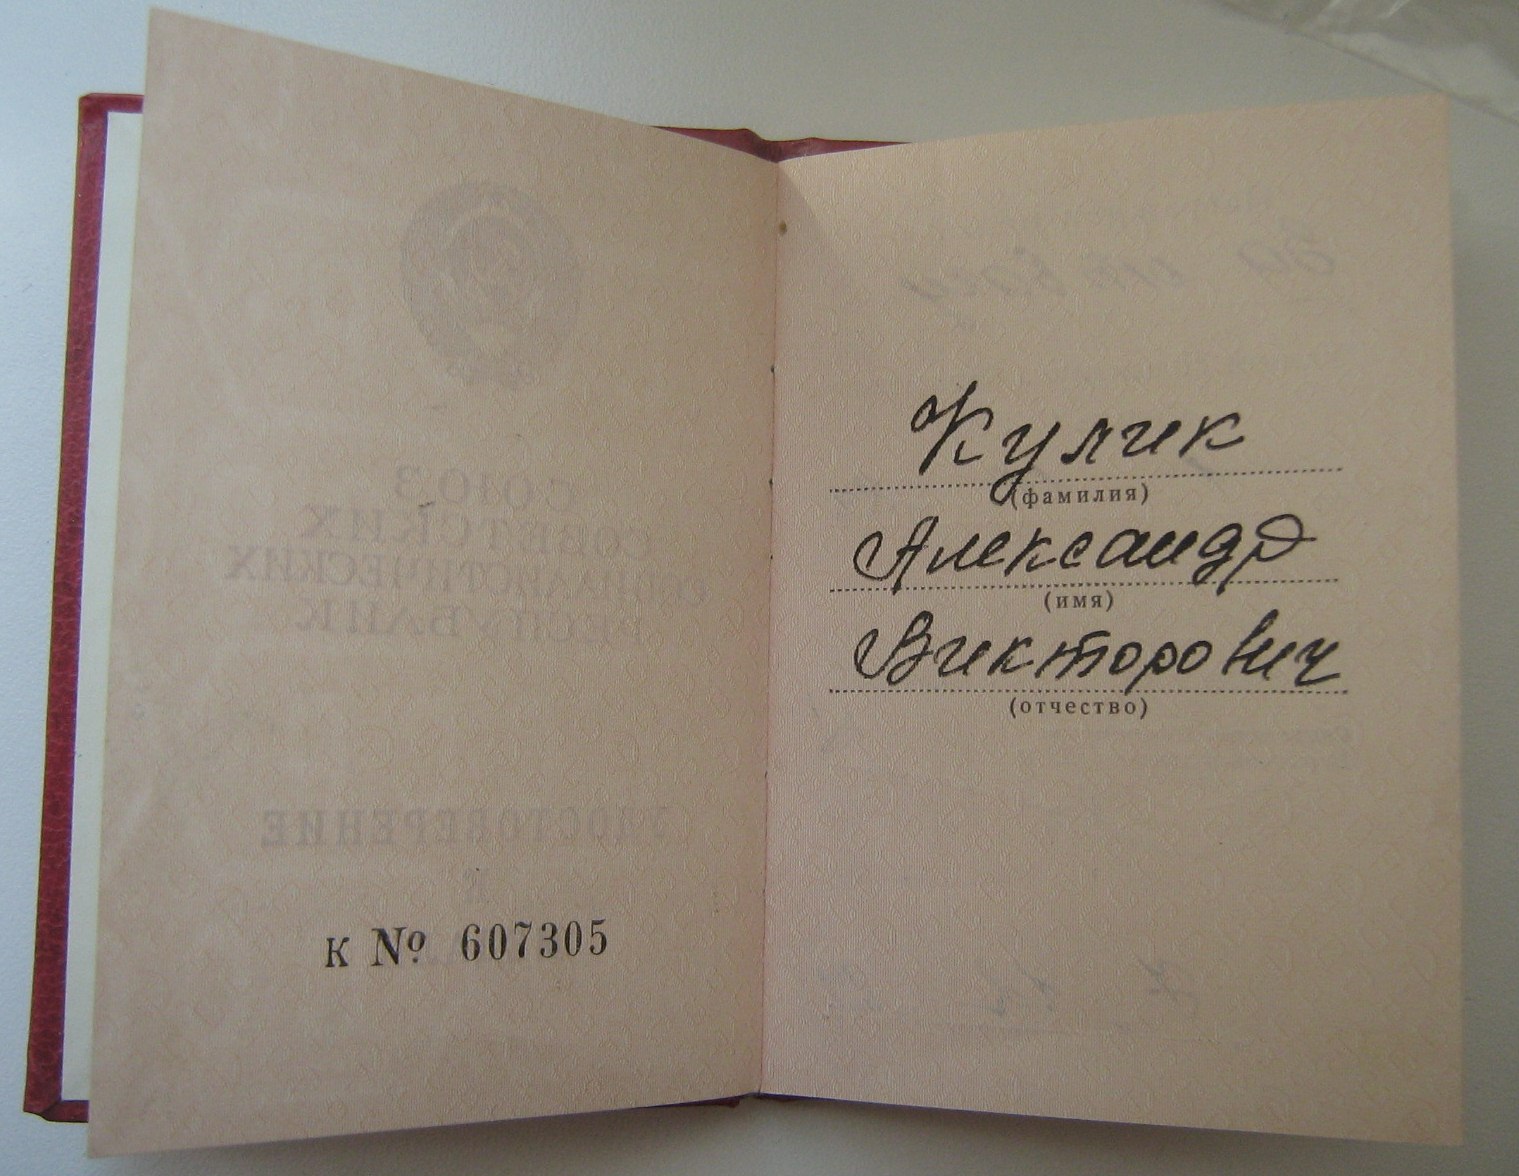 К № 607305
Кулик
(фамилия)
Александр
(имя)
Викторович
(отчество)